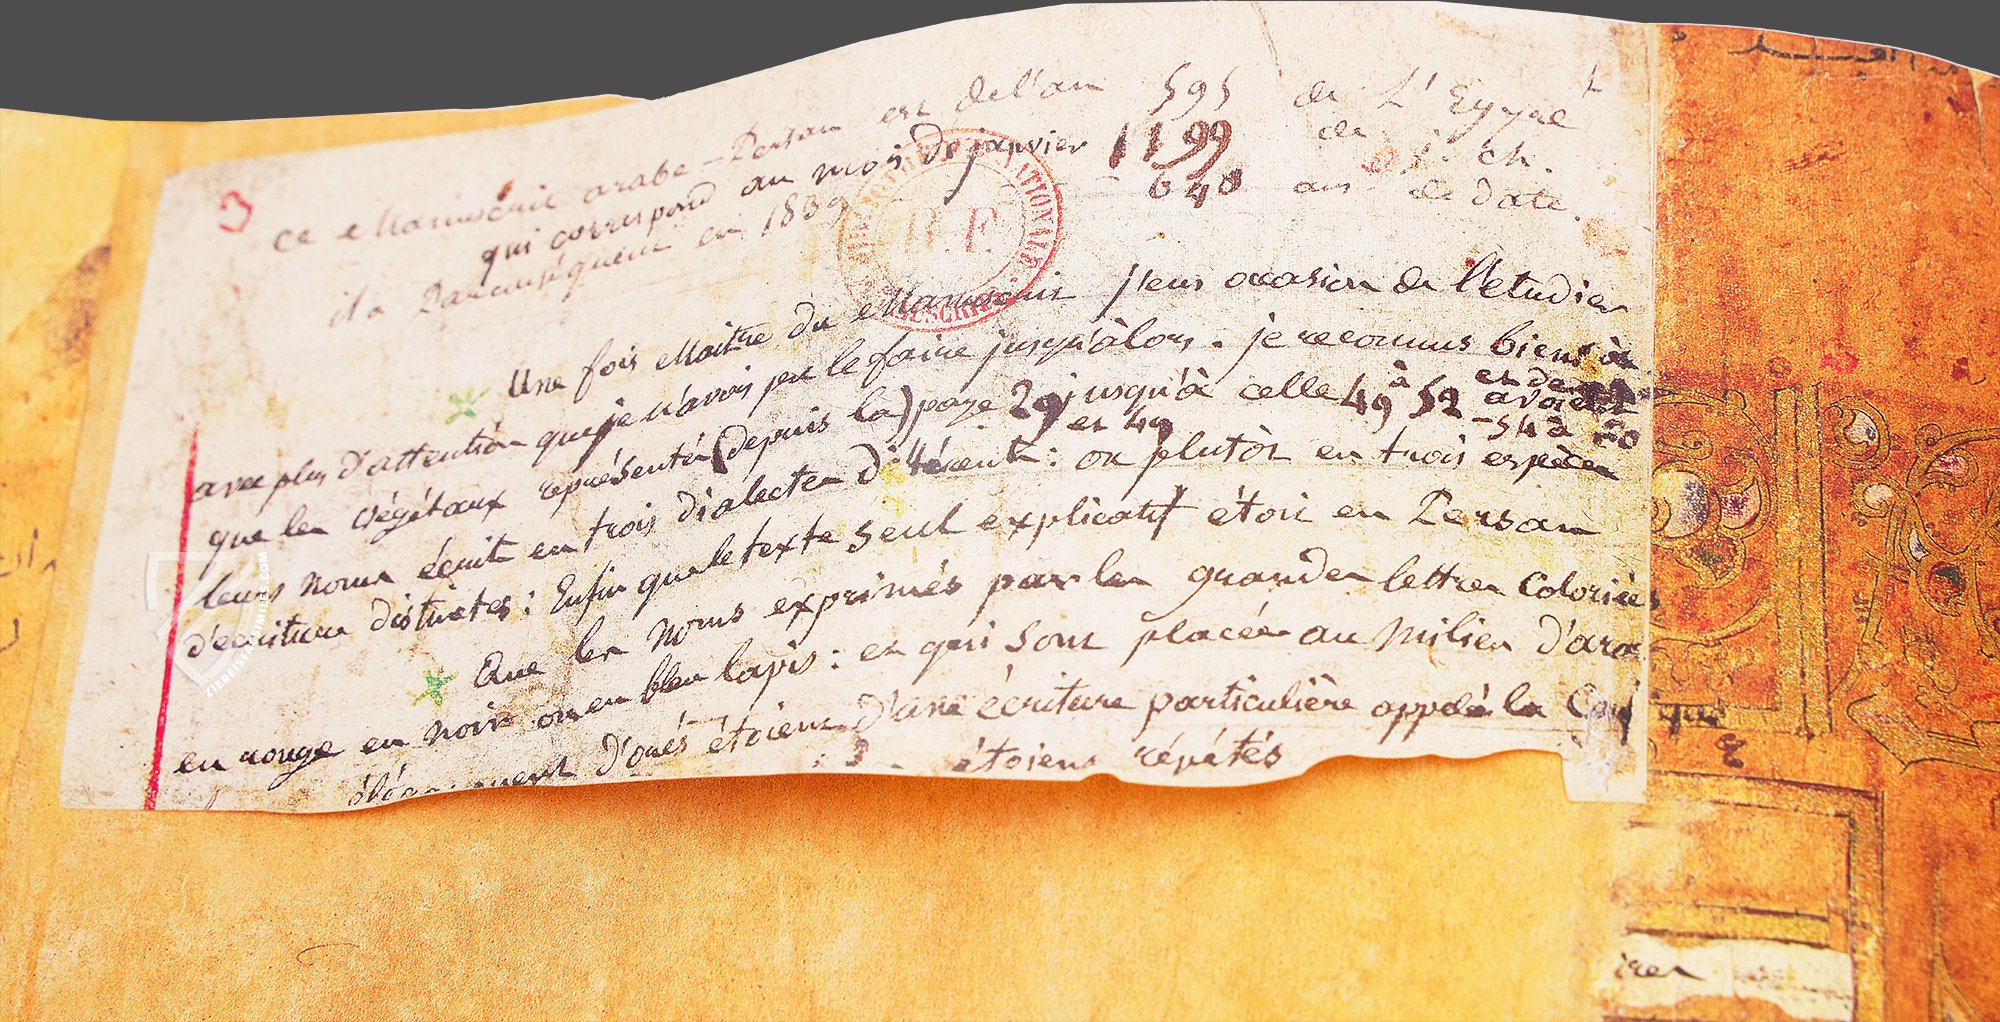 3
ce Manuscrit arabe-Persan est de l'an 595 de L'Egyre
qui correspond au mois de janvier 1199 de J. Ch.
il a Parconséquent en 1839 640 ans de date.
BIBLIOTHÈQUE NATIONALE
R.F.
MANUSCRITS
Une fois Maitre du Manuscrit j'eus occasion de l'étudier
avec plus d'attention que je n'avois pu le faire jusqu'àlors. je reconnus bientôt
que les végétaux représentés (depuis la) page 29 jusqu'à celle 49 à 52 et de
54 à 60 avoient
et 49
leurs noms écrits en trois dialectes différents: ou plutôt en trois espèces
d'écriture distinctes: Enfin que le texte seul explicatif étoit en Persan
Que les noms exprimés par les grandes lettres coloriées
en rouge en noir ou en bleu lapis: et qui sont placées au milieu d'ara
d'orés étoient d'une écriture particulière appelé la Coufique
étoient répétés
ZIEREIS FAKSIMILES.COM